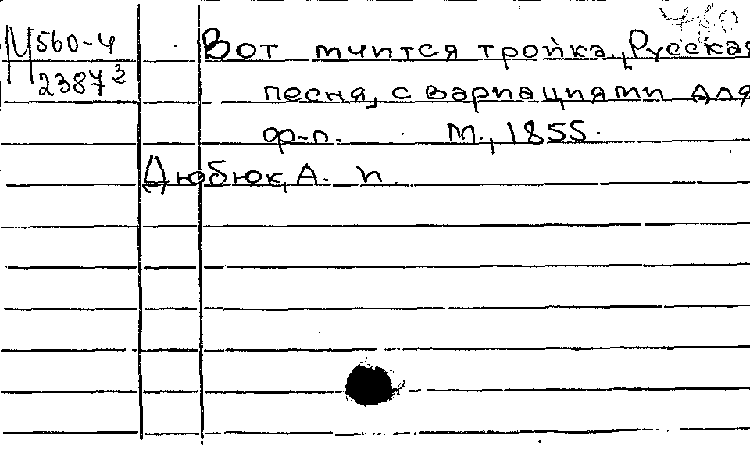 М 560-4
2387 3
Вот мчится тройка, Русская
песня, с вариациями для
ф-п. М., 1855.
Дюбюк, А. И.